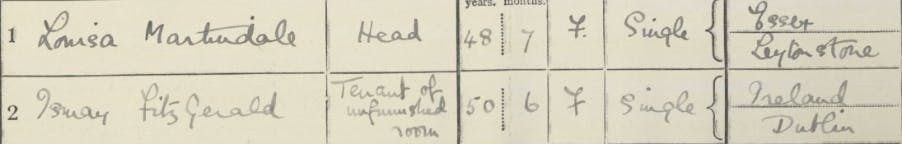 years. months.
1 Louisa Martindale Head 48 7 F. Single { Essex
Leytonstone
2 Ismay FitzGerald Tenant of unfurnished room 50 6 F Single { Ireland
Dublin